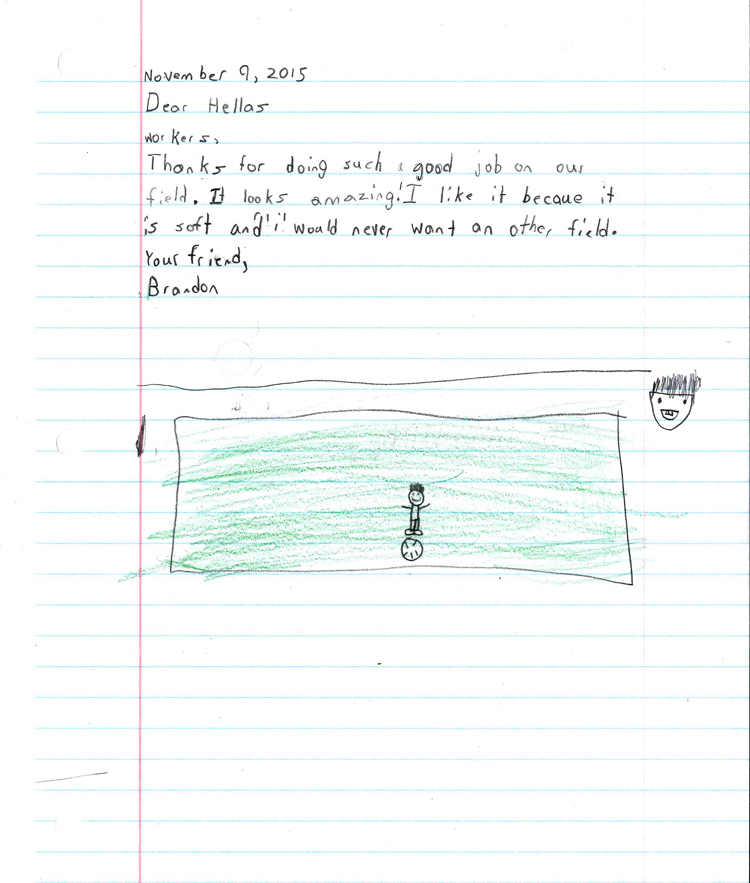 November 9, 2015
Dear Hellas
workers,
Thanks for doing such a good job on our
field. It looks amazing! I like it becaue it
is soft and i would never want an other field.
Your friend,
Brandon